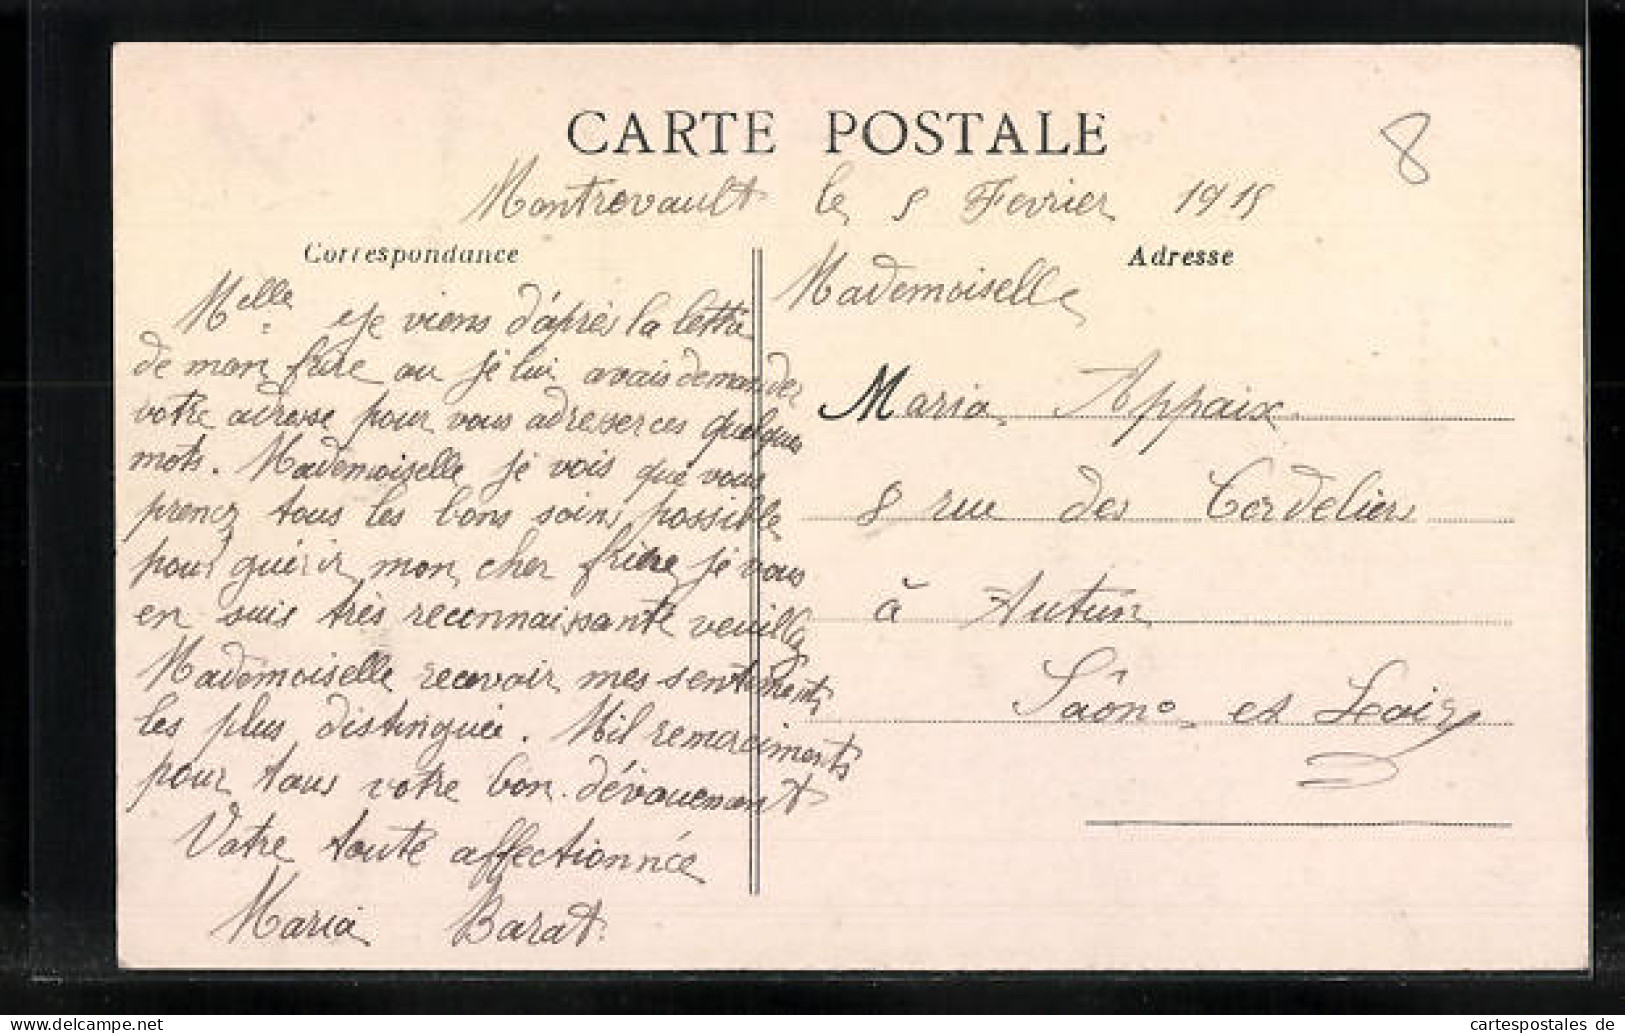 8
CARTE POSTALE
Montrevault le 8 Fevrier 1915
Correspondance
Melle Je viens d'après la lettre
de mon frère ou je lui avais demander
votre adresse pour vous adresser ces quelques
mots. Mademoiselle je vois que vous
prenez tous les bons soins possible
pour guérir mon cher frière je vous
en suis très reconnaissante veuillez
Mademoiselle recevoir mes sentiments
les plus distinguée. Mil remerciments
pour tous votre bon dévouement
Votre toute affectionnée
Maria Barat
Adresse
Mademoiselle
Maria Appaix
8 rue des Cordeliers
à Autun
Saône et Loire
cartespostales de
© www.cartespostales-online.com